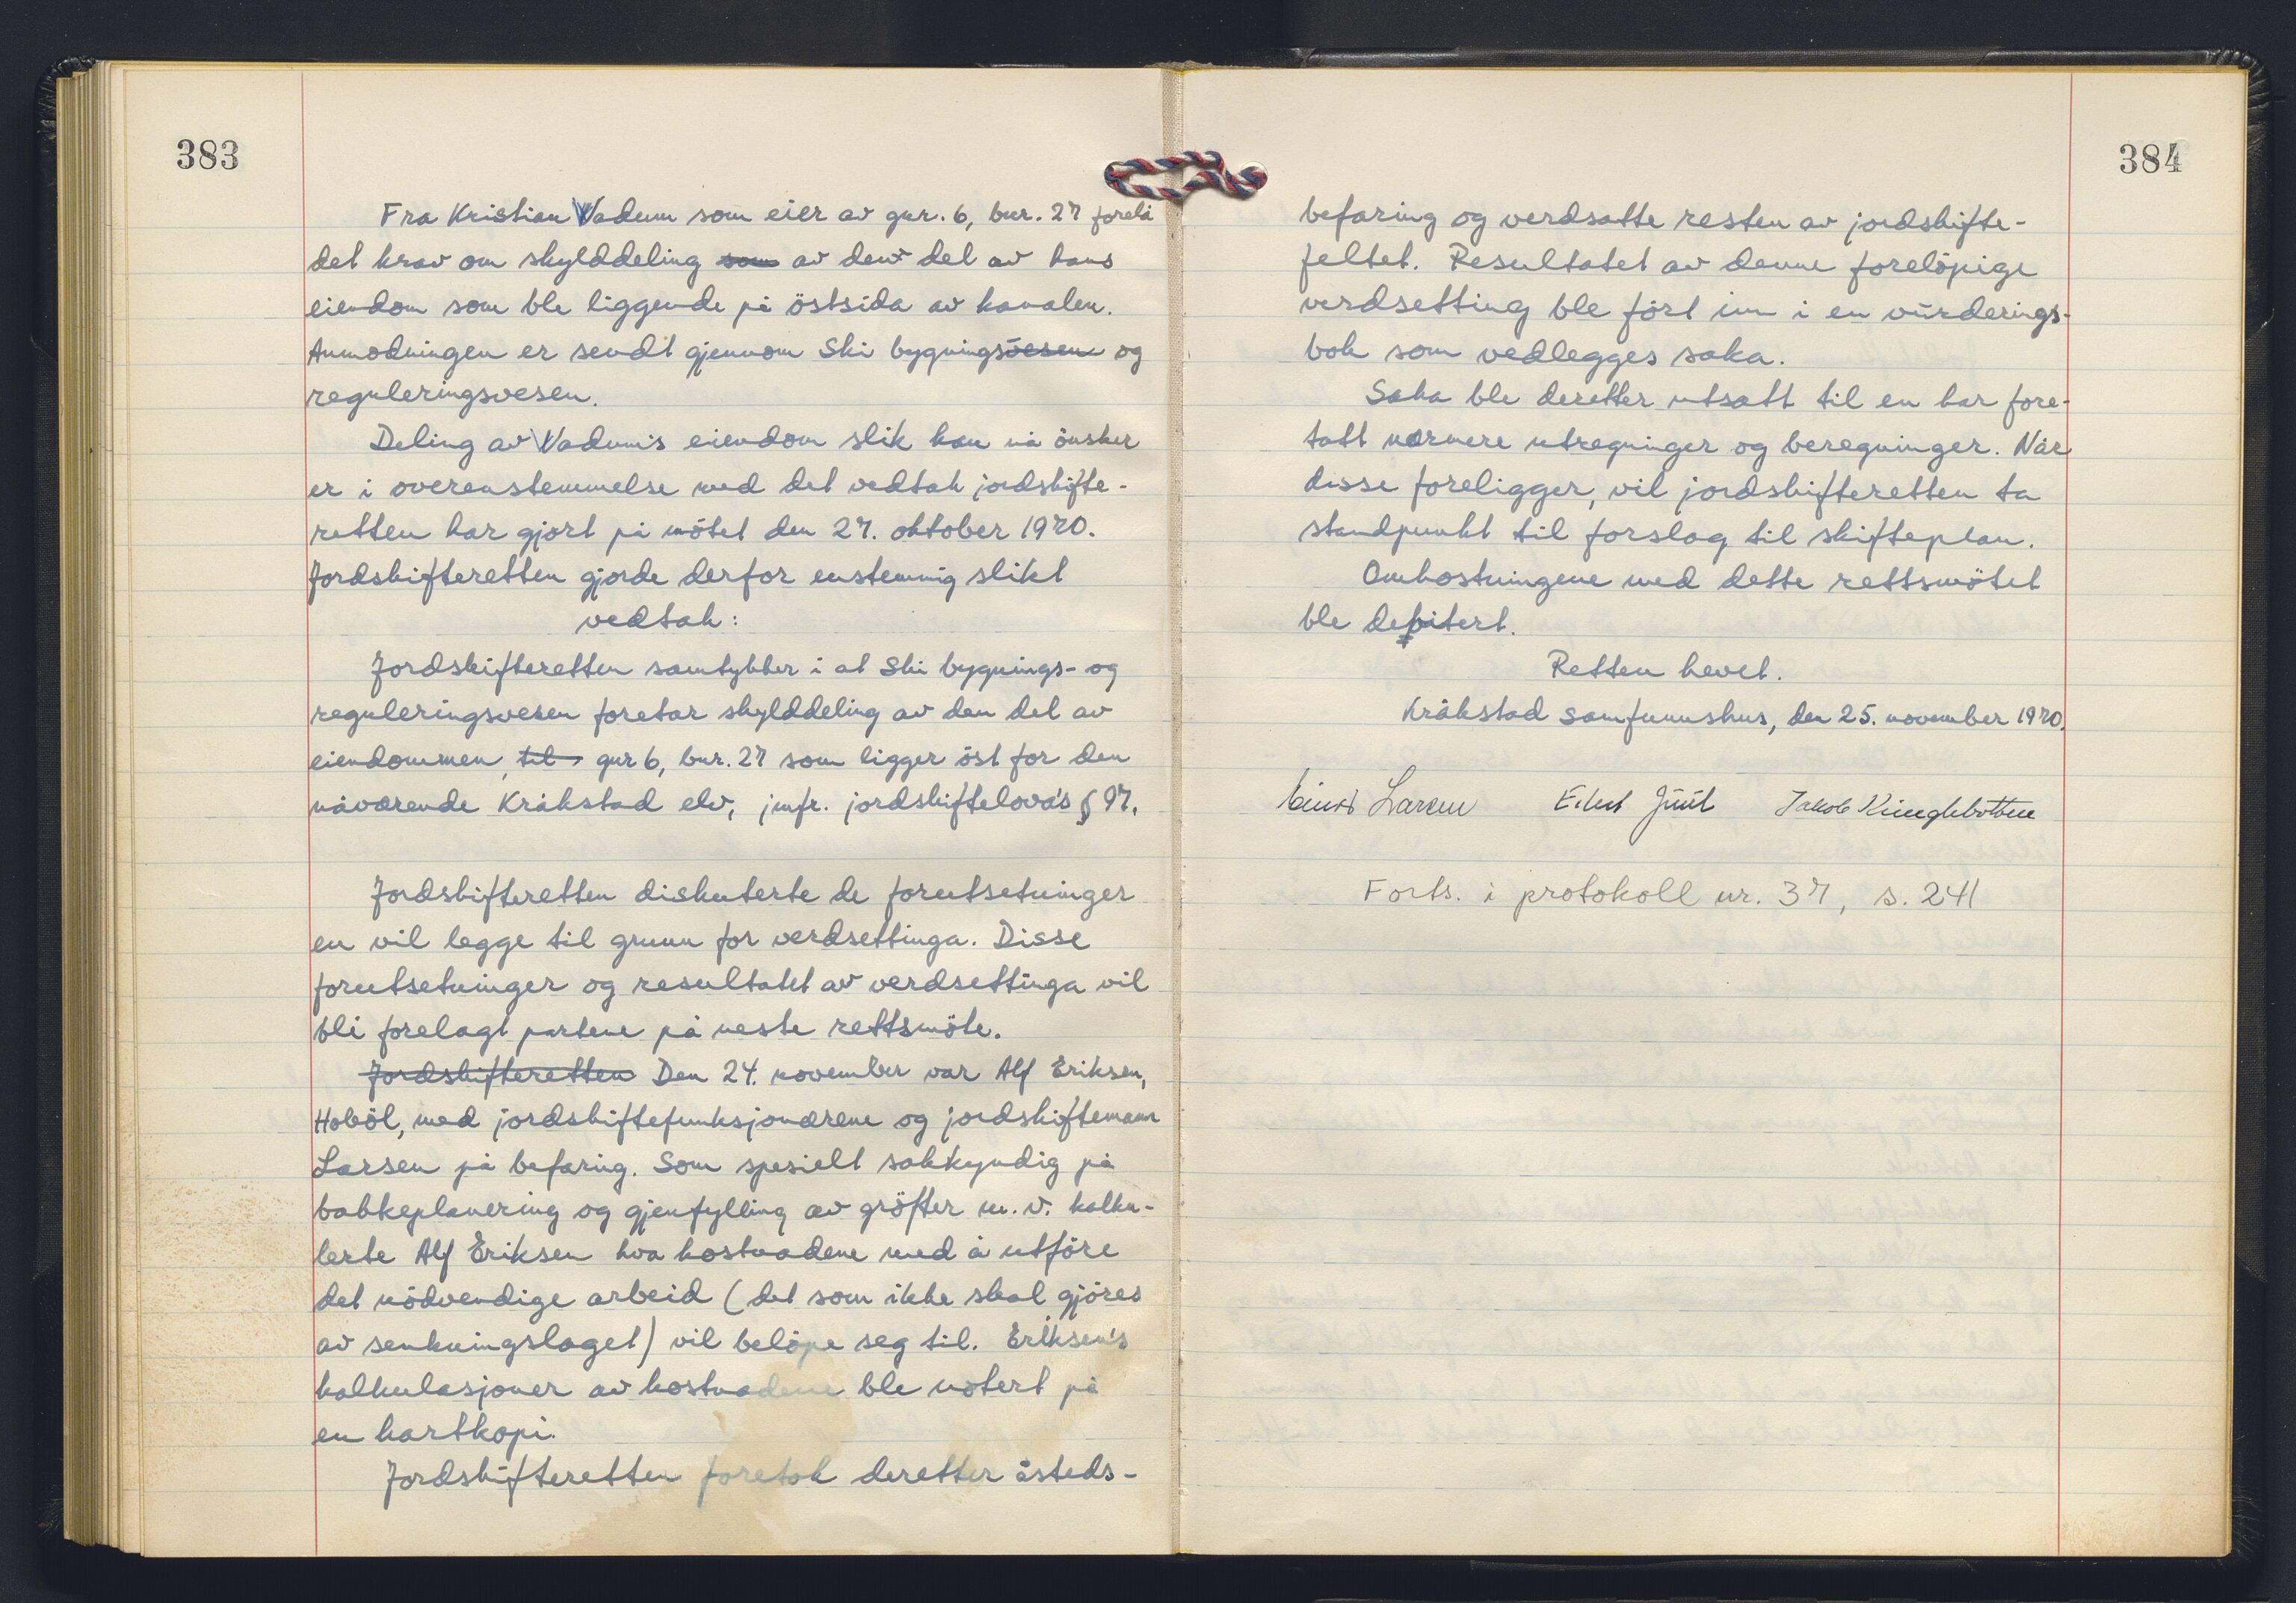 383
Fra Kristian Vadum som eier av gnr. 6, bnr. 27 forelå
det krav om skylddeling som av den del av hans
eiendom som ble liggende på östsida av kanalen.
Anmodningen er sendt gjennom Ski bygningsvesen og
reguleringsvesen.
Deling av Vadum's eiendom slik han nå önsker
er i overenstemmelse med det vedtak jordskifte-
retten har gjort på mötet den 27. oktober 1970.
Jordskifteretten gjorde derfor enstemmig slikt
vedtak:
Jordskifteretten samtykker i at Ski bygnings- og
reguleringsvesen foretar skylddeling av den del av
eiendommen, til gnr 6, bnr. 27 som ligger öst for den
nåværende Kråkstad elv, jmfr. jordskiftelova's § 97.
Jordskifteretten diskuterte de forutsetninger
en vil legge til grunn for verdsettinga. Disse
forutsetninger og resultatet av verdsettinga vil
bli forelagt partene på neste rettsmöte.
Jordskifteretten Den 24. november var Alf Eriksen,
Hoböl, med jordskiftefunksjonærene og jordskiftemann
Larsen på befaring. Som spesiell sakkyndig på
bakkeplanering og gjenfylling av gröfter m.v. kalku-
lerte Alf Eriksen hva kostnadene med å utföre
det nödvendige arbeid (det som ikke skal gjöres
av senkningslaget) vil belöpe seg til. Eriksen's
kalkulasjoner av kostnadene ble notert på
en kartkopi.
Jordskifteretten foretok deretter åsteds-
384
befaring og verdsatte resten av jordskifte-
feltet. Resultatet av denne forelöpige
verdsetting ble fört inn i en vurderings-
bok som vedlegges saka.
Saka ble deretter utsatt til en har fore-
tatt nærmere utregninger og beregninger. Når
disse foreligger, vil jordskifteretten ta
standpunkt til forslag til skifteplan.
Omkostningene med dette rettsmötet
ble debitert.
Retten hevet.
Kråkstad samfunnshus, den 25. november 1970.
Larsen Juul Jakob
Forts. i protokoll nr. 37, s. 241